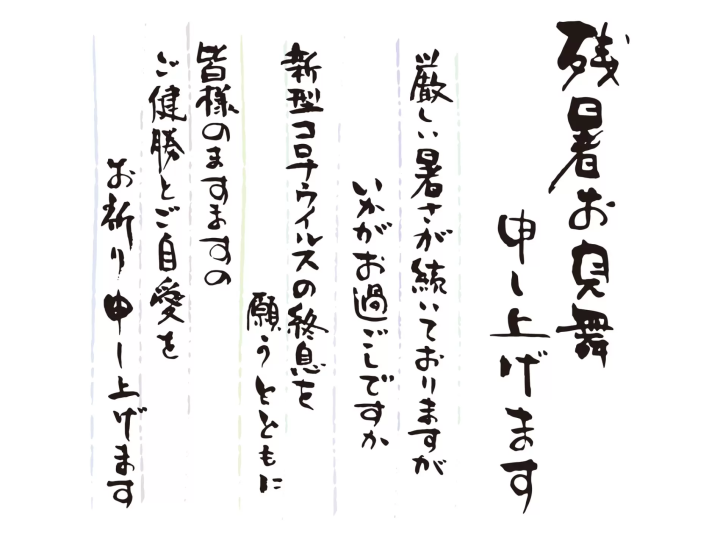 残暑お見舞
申し上げます
厳しい暑さが続いておりますが
いかがお過ごしですか
新型コロナウイルスの終息を
願うとともに
皆様のますますの
ご健勝とご自愛を
お祈り申し上げます